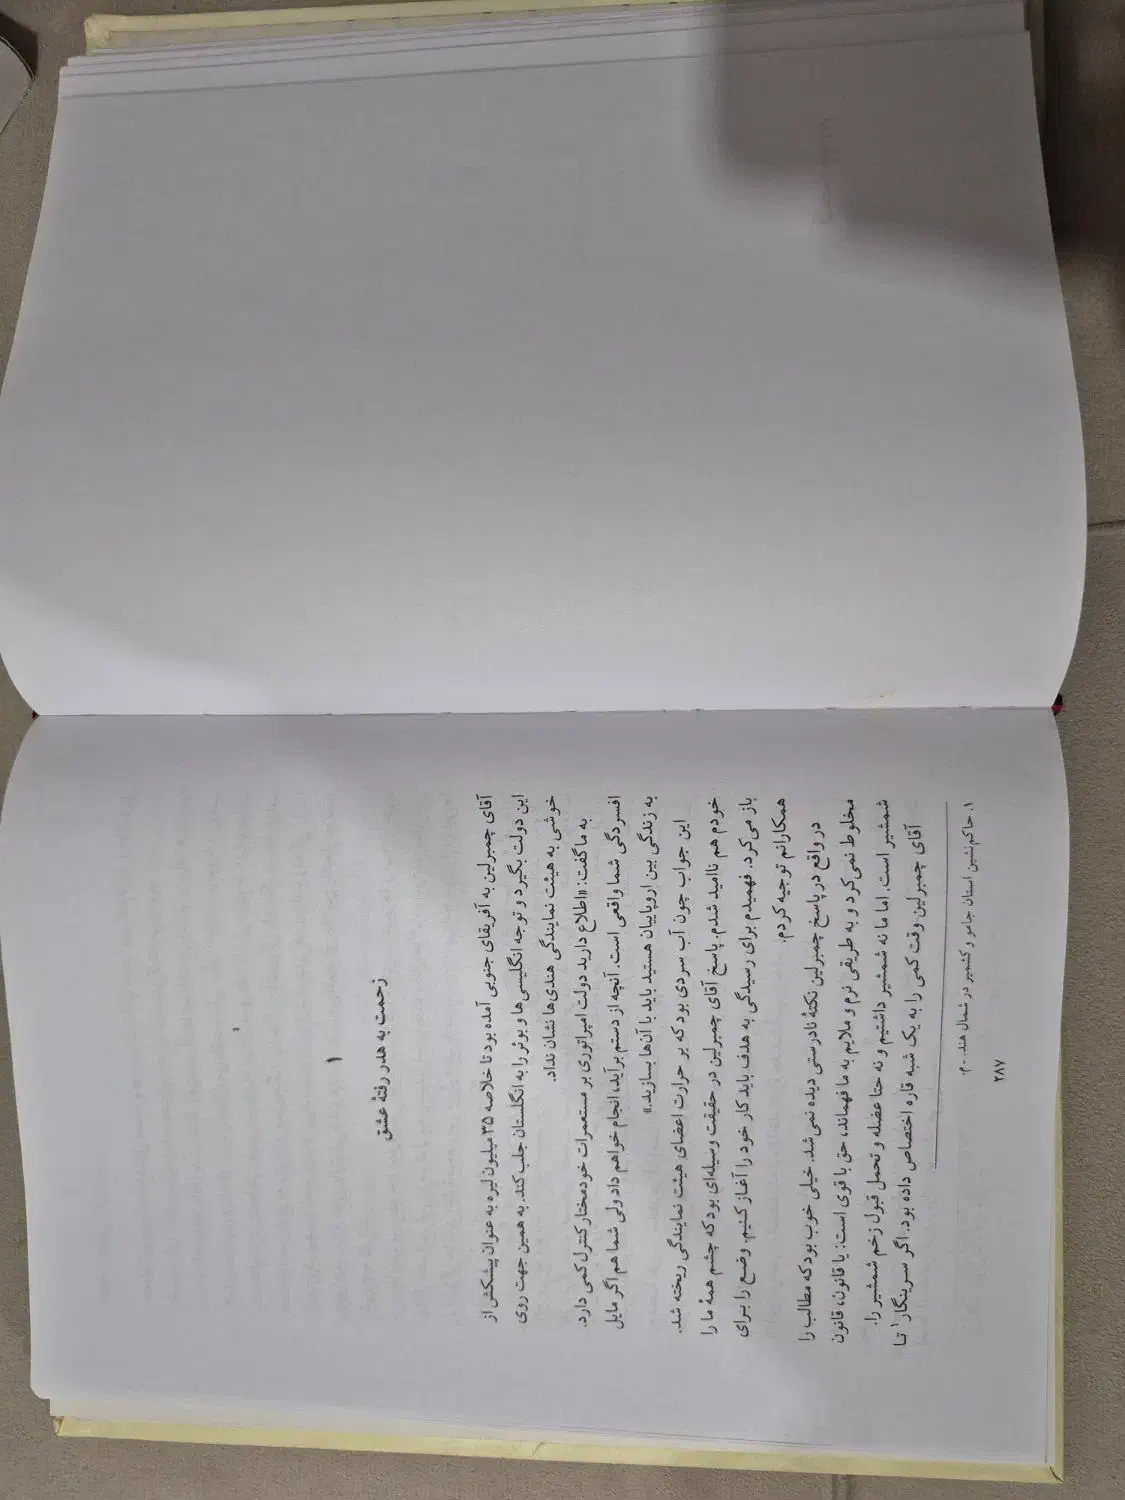 ۱
زحمت به هدر رفتهٔ عشق
آقای چمبرلین به آفریقای جنوبی آمده بود تا خلاصه ۳۵ میلیون لیره به عنوان پیشکش از
این دولت بگیرد و توجه انگلیسی‌ها و بوئر را به انگلستان جلب کند. به همین جهت روی
خوشی به هیئت نمایندگی هندی‌ها نشان نداد.
به ما گفت: «اطلاع دارید دولت امپراتوری بر مستعمرات خودمختار کنترل کمی دارد.
افسردگی شما واقعی است. آنچه از دستم برآید، انجام خواهم داد ولی شما هم اگر مایل
به زندگی بین اروپاییان هستید باید با آن‌ها بسازید.»
این جواب چون آب سردی بود که بر حرارت اعضای هیئت نمایندگی ریخته شد.
خودم هم ناامید شدم. پاسخ آقای چمبرلین در حقیقت وسیله‌ای بود که چشم همهٔ ما را
باز می‌کرد. فهمیدم برای رسیدگی به هدف باید کار خود را آغاز کنیم. وضع را برای
همکارانم توجیه کردم.
در واقع در پاسخ چمبرلین نکتهٔ نادرستی دیده نمی‌شد. خیلی خوب بود که مطالب را
مخلوط نمی‌کرد و به طریقی نرم و ملایم به ما فهماند، حق با قوی است: یا قانون، قانون
شمشیر است. اما ما نه شمشیر داشتیم و نه حتا عضله و تحمل قبول زخم شمشیر را.
آقای چمبرلین وقت کمی را به یک شبه قاره اختصاص داده بود. اگر سرینگار۱ تا
۱. حاکم‌نشین استان جامو و کشمیر در شمال هند. -م.
۲۸۷